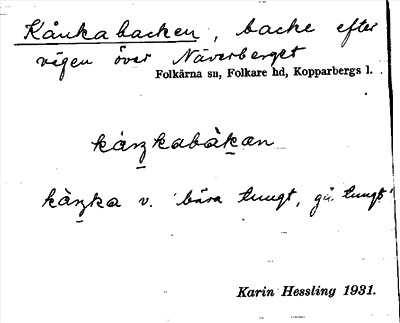 Kånkabacken, backe efter
vägen över Näverberget
Folkärna sn, Folkare hd, Kopparbergs l.
kåŋkabàkan
kàŋka v. 'bära tungt, gå tungt'
Karin Hessling 1931.